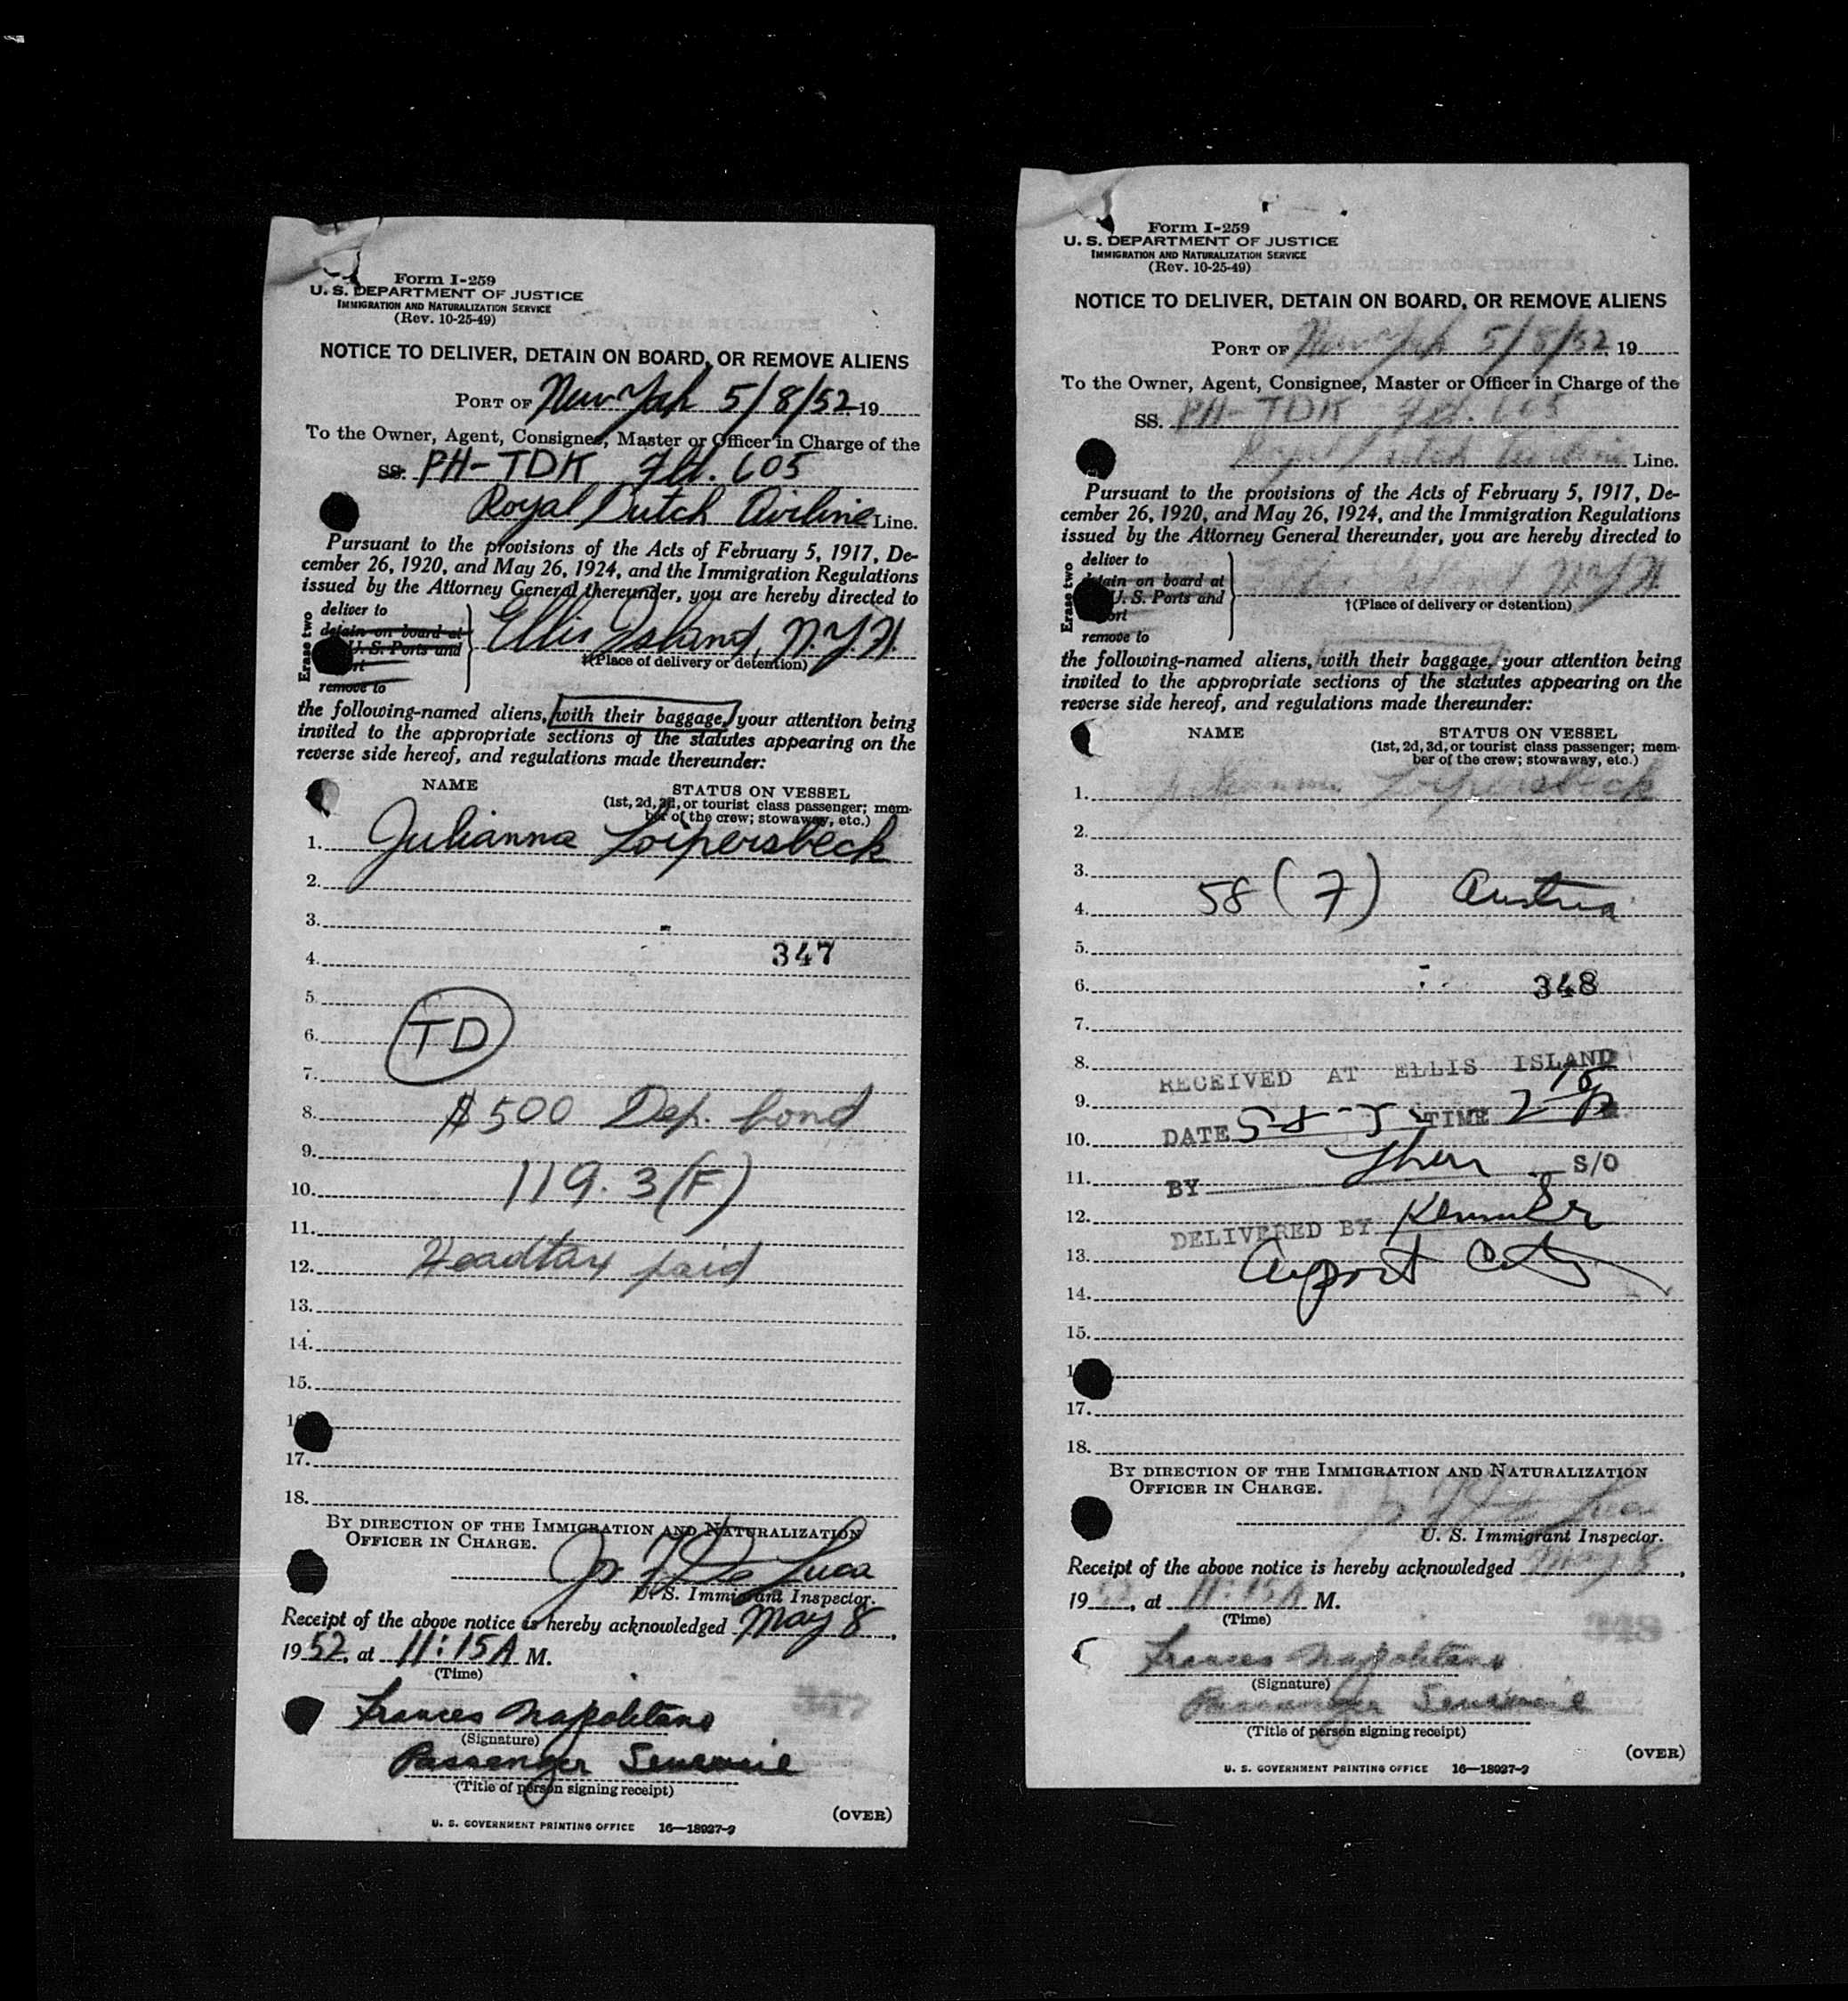 Form I-259
U. S. DEPARTMENT OF JUSTICE
IMMIGRATION AND NATURALIZATION SERVICE
(Rev. 10-25-49)
NOTICE TO DELIVER, DETAIN ON BOARD, OR REMOVE ALIENS
PORT OF New York 5/8/52 19
To the Owner, Agent, Consignee, Master or Officer in Charge of the
SS. PH-TDK Flt. 605
Royal Dutch Airline Line.
Pursuant to the provisions of the Acts of February 5, 1917, De-
cember 26, 1920, and May 26, 1924, and the Immigration Regulations
issued by the Attorney General thereunder, you are hereby directed to
Erase two
deliver to
detain on board at
U. S. Ports and
remove to
Ellis Island, N.Y.H.
†(Place of delivery or detention)
the following-named aliens, with their baggage, your attention being
invited to the appropriate sections of the statutes appearing on the
reverse side hereof, and regulations made thereunder:
NAME STATUS ON VESSEL
(1st, 2d, 3d, or tourist class passenger; mem-
ber of the crew; stowaway, etc.)
1. Julianna Loipersbeck
2.
3.
4. 347
5.
6. TD
7.
8. $500 Dep. bond
9.
10. 119.3(F)
11.
12. Headtax paid
13.
14.
15.
16
17.
18.
BY DIRECTION OF THE IMMIGRATION AND NATURALIZATION
OFFICER IN CHARGE.
De Luca
U. S. Immigrant Inspector.
Receipt of the above notice is hereby acknowledged May 8,
1952, at 11:15A M.
(Time)
347
Frances Napolitano
(Signature)
Passenger
(Title of person signing receipt)
(OVER)
U. S. GOVERNMENT PRINTING OFFICE 16—18927-2
Form I-259
U. S. DEPARTMENT OF JUSTICE
IMMIGRATION AND NATURALIZATION SERVICE
(Rev. 10-25-49)
NOTICE TO DELIVER, DETAIN ON BOARD, OR REMOVE ALIENS
PORT OF New York 5/8/52 19
To the Owner, Agent, Consignee, Master or Officer in Charge of the
SS. PH-TDK Flt. 605
Royal Dutch Airline Line.
Pursuant to the provisions of the Acts of February 5, 1917, De-
cember 26, 1920, and May 26, 1924, and the Immigration Regulations
issued by the Attorney General thereunder, you are hereby directed to
Erase two
deliver to
detain on board at
U. S. Ports and
remove to
Ellis Island N.Y.H.
†(Place of delivery or detention)
the following-named aliens, with their baggage, your attention being
invited to the appropriate sections of the statutes appearing on the
reverse side hereof, and regulations made thereunder:
NAME STATUS ON VESSEL
(1st, 2d, 3d, or tourist class passenger; mem-
ber of the crew; stowaway, etc.)
1. Julianna Loipersbeck
2.
3.
4. 58 (7) Austria
5.
6. 348
7.
8. RECEIVED AT ELLIS ISLAND
9.
DATE 5-8-52 TIME
10.
11. BY S/O
12.
DELIVERED BY
13. Airport
14.
15.
1
17.
18.
BY DIRECTION OF THE IMMIGRATION AND NATURALIZATION
OFFICER IN CHARGE.
De Luca
U. S. Immigrant Inspector.
Receipt of the above notice is hereby acknowledged May 8,
1952, at 11:15A M.
(Time)
348
Frances Napolitano
(Signature)
Passenger
(Title of person signing receipt)
(OVER)
U. S. GOVERNMENT PRINTING OFFICE 16—18927-2